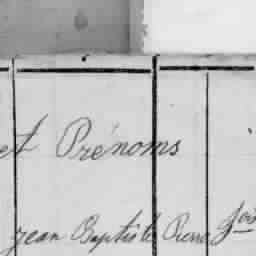 et Prénoms
Jean Baptiste Pierre